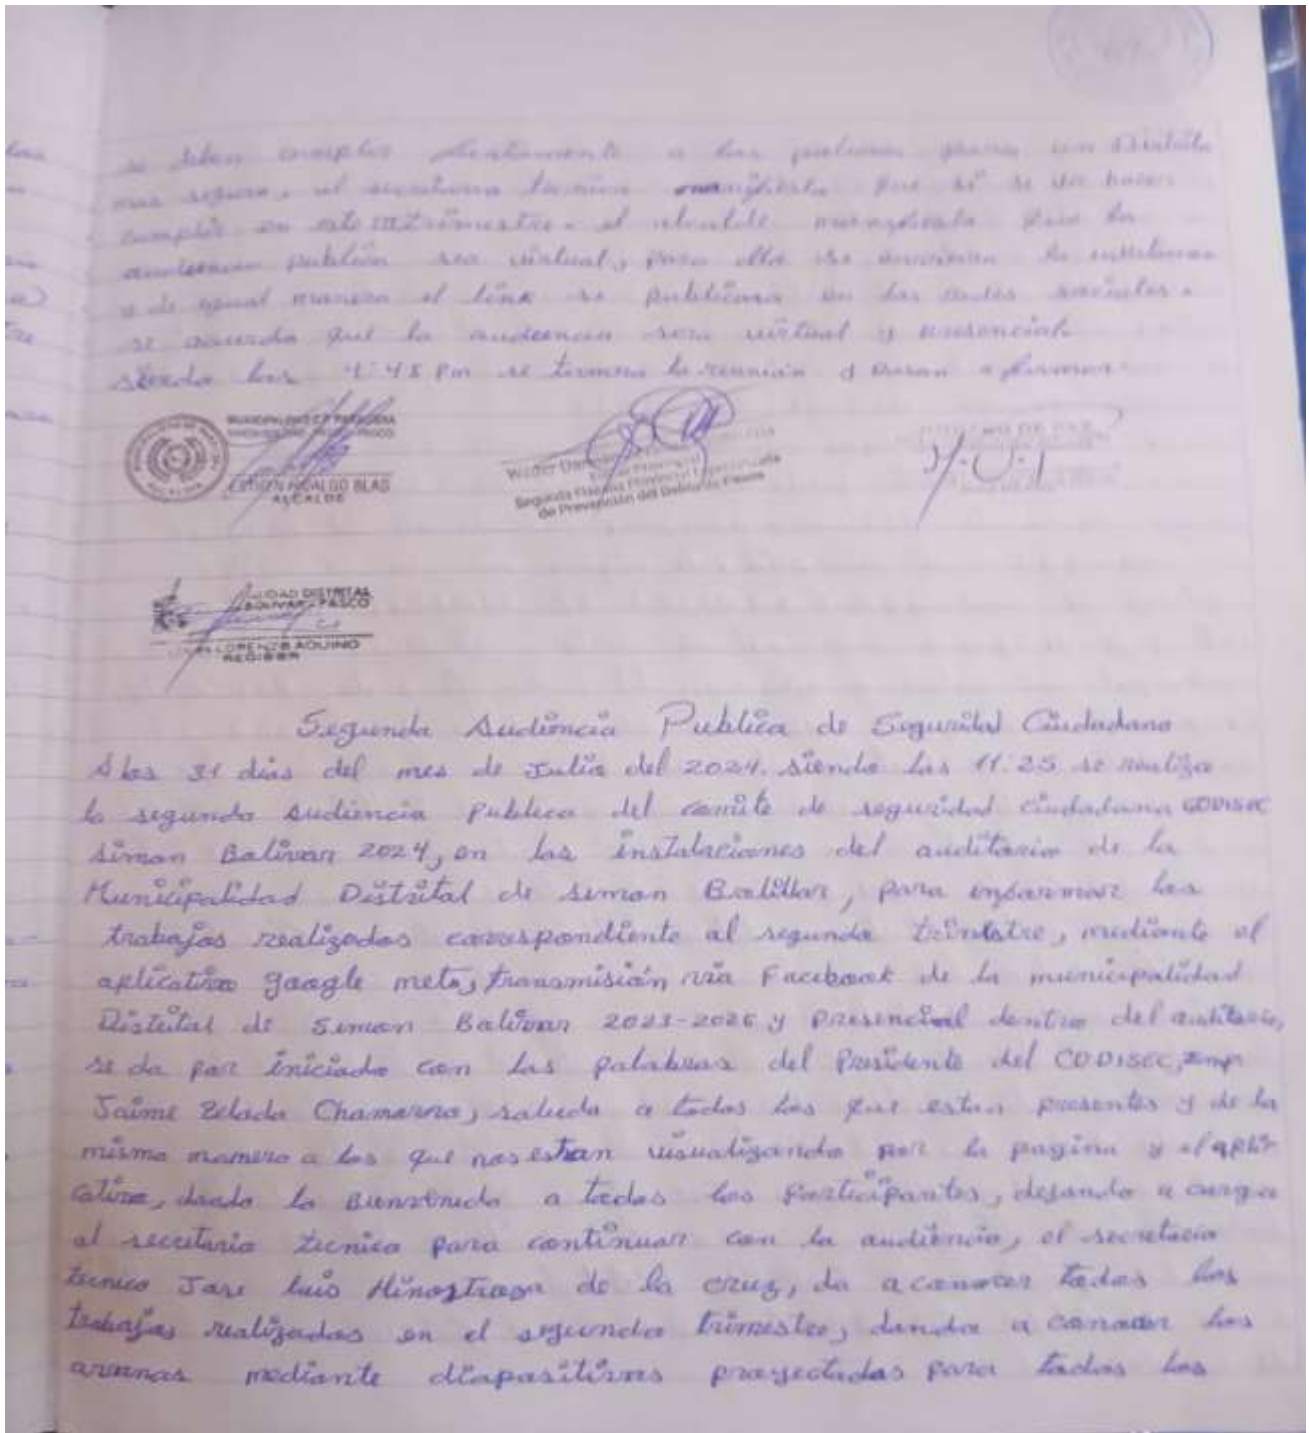 se deben cumplir
mas segura, el secretario técnico manifiesta que si se da hacer
cumplir en este trimestre. el alcalde manifiesta que la
audiencia publica sea virtual, para ello se
y de igual manera el link se publicara en las redes sociales.
se acuerda que la audiencia sera virtual y presencial.
siendo las 4:48 Pm se termina la reunión y pasan a firmar.
HIDALGO BLAS
ALCALDE
Segunda Fiscalía Provincial
de Prevención del Delito de Pasco
DISTRITAL
BOLIVAR - PASCO
LORENZO AQUINO
REGIDOR
Segunda Audiencia Publica de Seguridad Ciudadana
A los 31 dias del mes de Julio del 2024. siendo las 11:25 se realiza
la segunda Audiencia Publica del comite de seguridad ciudadana CODISEC
simon Bolivar 2024, en las instalaciones del auditorio de la
Municipalidad Distrital de simon Bolivar, para informar los
trabajos realizados correspondiente al segundo trimestre, mediante el
aplicativo google meto, transmisión via Facebook de la municipalidad
Distrital de Simon Bolivar 2023-2026 y presencial dentro del auditorio,
se da por iniciado con las palabras del Presidente del CODISEC,
Jaime Zelada Chamorro, saluda a todos los que estan presentes y de la
misma manera a los que nos estan visualizando por la pagina y el apli-
cativo, dando la Bienvenida a todos los participantes, dejando a cargo
al secretario tecnico para continuar con la audiencia, el secretario
tecnico Jose luis Hinostroza de la cruz, da a conocer todos los
trabajos realizados en el segundo trimestre, dando a conocer los
mediante diapositivas proyectadas para todos los